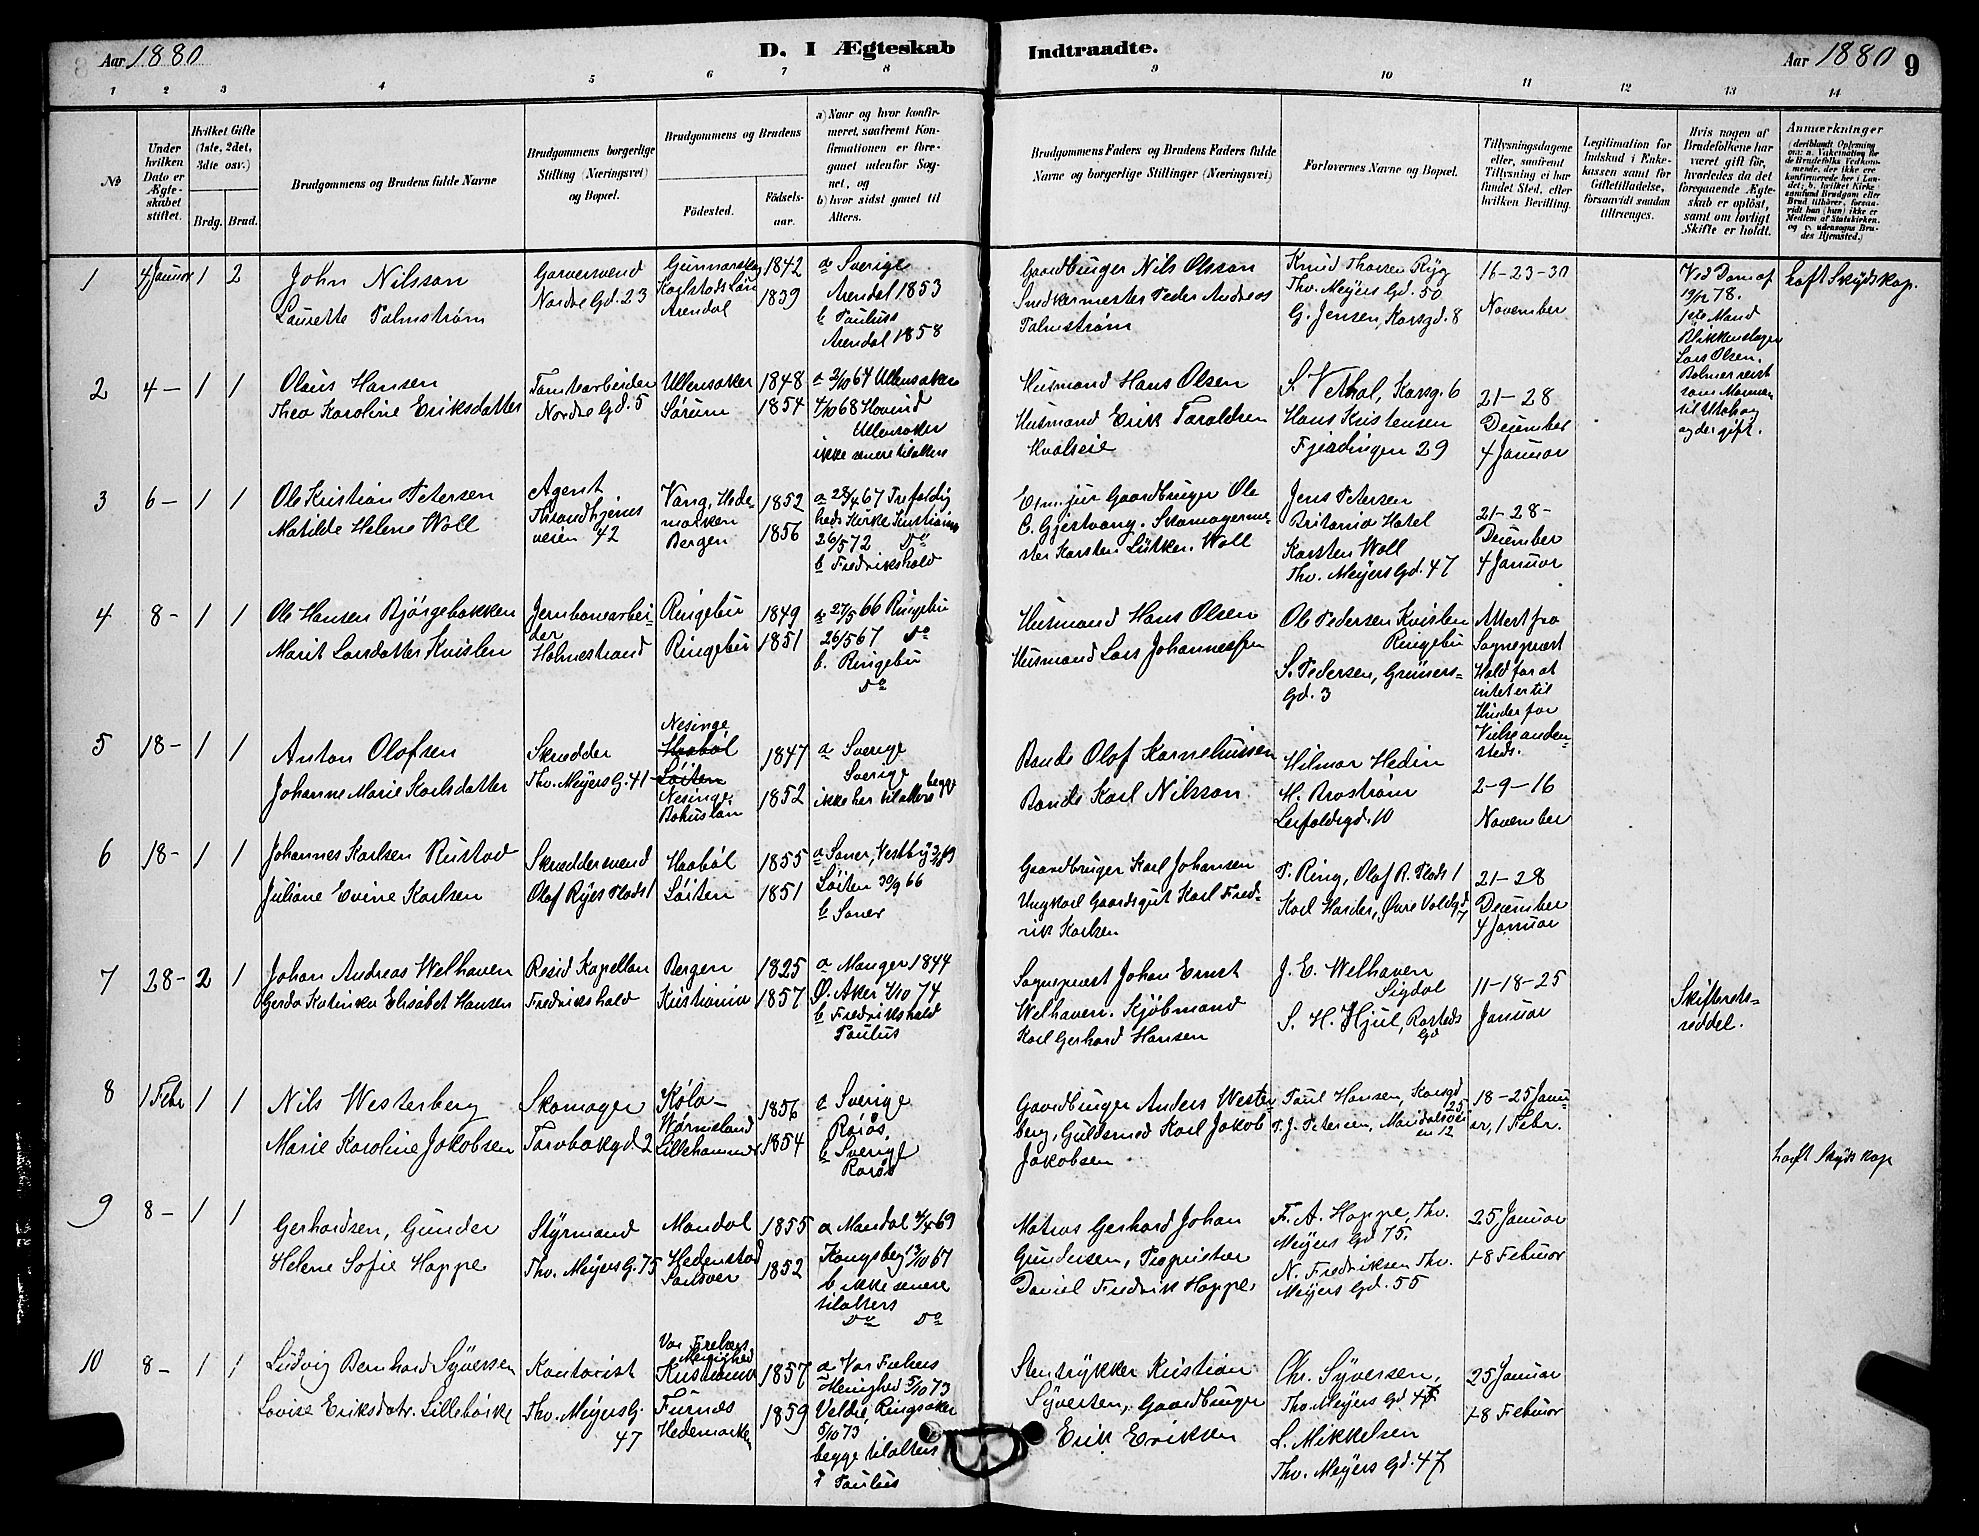 Aar 1880
D. I Ægteskab
Indtraadte.
Aar 1880 9
1 2 3 4 5 6 7 8 9 10 11 12 13 14
№
Under hvilken Dato er Ægteskabet stiftet.
Hvilket Gifte (1ste, 2det, 3die osv.)
Brdg. Brud.
Brudgommens og Brudens fulde Navne
Brudgommens borgerlige Stilling (Næringsvei) og Bopæl.
Brudgommens og Brudens
Fødested.
Fødsels-aar.
a) Naar og hvor konfirmeret, saafremt Konfirmationen er foregaaet udenfor Sognet, og
b) hvor sidst gaaet til Alters.
Brudgommens Faders og Brudens Faders fulde Navne og borgerlige Stillinger (Næringsvei)
Forlovernes Navne og Bopæl.
Tillysningsdagene eller, saafremt Tillysning ei har fundet Sted, efter hvilken Bevilling.
Legitimation for Indskud i Enkekassen samt for Giftetilladelse, forsaavidt saadan tiltrænges.
Hvis nogen af Brudefolkene har været gift før, hvorledes da det foregaaende Ægteskab er opløst, samt om lovligt Skifte er holdt.
Anmærkninger
1 4 Januar 1 2
John Nilsson
Laurette Palmstrøm
Garversvend
Nordre Gd. 23
Gunnarskog
Karlstads Län
Arendal
1842
1839
a Sverige
Arendal 1853
b Paulus
Arendal 1858
Gaardbruger Nils Olsson
Snedkermester Peder Andreas
Palmstrøm
Knud Thorsen Ryg
Thv. Meyers Gd. 50
G. Jensen, Korsgd. 8
16-23-30
November
Ved Dom af
19/12 78.
1ste Mand
Blikkenslager
Lars Olsen.
som Mormon
til Utah og
og der gift.
haft Skydskop.
2 4 — 1 1
Olaus Hansen
Thea Karoline Eriksdatter
Tomtearbeider
Nordre Gd. 5
Ullensaker
Sørum
1848
1854
a 2/10 64 Ullensaker
4/10 68 Hovind
Ullensaker
ikke senere tilalters
Husmand Hans Olsen
Husmand Erik Taraldsen
Kvalseie
S. Vethal, Korsg. 6
Hans Kristensen
Fjerdingen 29
21-28
December
4 Januar
3 6 — 1 1
Ole Kristian Petersen
Matilde Helene Woll
Agent
Throndhjems
veien 42
Vang, Hede-
marken
Bergen
1852
1856
a 28/4 67 Trefoldig
heds Kirke Kristiania
26/5 72 Do
b Fredrikshald
Gaardbruger Ole
C. Gjestvang. Skomagerme-
ster Karsten Lütken Woll
Jens Petersen
Britania Hotel
Karsten Woll
Thv. Meyers Gd. 47
21-28-
December
4 Januar
4 8 - 1 1
Ole Hansen Bjørgebakken
Marit Larsdatter Kvislen
Jernbanearbei-
der
Holmestrand
Ringebu
Ringebu
1849
1851
a 27/5 66 Ringebu
26/5 67 Do
b. Ringebu
Do
Husmand Hans Olsen
Husmand Lars Johannessen
Ole Pedersen Kvislen
Ringebu
S. Pedersen, Grüners-
Gd. 3
Attest fra
Sognepræst
Hald for at
intet er til
Hinder for
Vielse anden-
steds.
5 18- 1 1
Anton Olofsen
Johanne Marie Karlsdatter
Skrædder
Thv. Meyers G. 41
Nesinge
Haabøl
Løiten
Nesinge
Bohuslän
1847
1852
a Sverige
Sverige
ikke her tilalters begge
Bonde Olof Korneliussen
Bonde Karl Nilsson
Hilmar Hedin
M. Broström
Leifaldsgd. 10
2-9-16
November
6 18- 1 1
Johannes Karlsen Rustad
Juliane Evine Karlsen
Skræddersvend
Olaf Ryes Plads 1
Haabøl
Løiten
1855
1851
a Soner, Vestby
Løiten 30/9 66
b Soner
Gaardbruger Karl Johansen
Ungkarl Gaardsgut Karl Fred-
rik Karlsen
P. Ring, Olaf R. Plads 1
Karl Harder, Øvre Voldgd
7
21-28
December
4 Januar
7 28- 2 1
Johan Andreas Welhaven
Gerda Katinka Elisabet Hansen
Resid Kapellan
Fredrikshald
Bergen
Kristiania
1825
1857
a Manger 1844
Ø. Aker 4/10 74
b Fredrikshald
Paulus
Sognepræst Johan Ernst
Welhaven. Kjøbmand
Karl Gerhard Hansen
J. E. Welhaven
Sigdal
S. H. Hjul, Rosteds
Gd
11-18-25
Januar
Skifterets-
seddel.
8 1 Febr 1 1
Nils Westerberg
Marie Karoline Jakobsen
Skomager
Torvbakgd. 2
Køla-
Wærmeland
Lillehammer
1856
1854
a Sverige
Rørøs,
b Sverige
Rørøs
Gaardbruger Anders Wester-
berg, Guldsmed Karl Jakob
Jakobsen
Paul Hansen, Korsgd
25
P. J. Petersen, Maridalsvei
en 12
18-25 Janu-
ar, 1 Febr.
haft Skydskop
9 8 — 1 1
Gerhardsen, Gunder
Helene Sofie Hoppe
Styrmand
Thv. Meyers G. 75
Mandal
Hedenstad
Sandsvær
1855
1852
a Mandal 4/4 69
Kongsberg 13/10 67
b ikke senere
tilalters
Do Do
Matias Gerhard Johan
Gundersen, Proprietær
Daniel Fredrik Hoppe.
F. A. Hoppe, Thv.
Meyers Gd 75.
N. Fredriksen Thv.
Meyers Gd. 55
25 Januar
1-8 Februar
10 8 — 1 1
Ludvig Bernhard Syversen
Lovise Eriksdatr. Lillehoike
Kontorist
Thv. Meyers G.
47
Vor Frelsers
Menighed
Kristiania
Furnes
Hedemarken
1857
1859
a Vor Frelsers
Menighed 5/10 73
Veldre, Ringsaker
5/10 73
begge tilalters
i Paulus
Stentrykker Kristian
Syversen, Gaardbruger
Erik Eriksen
Chr. Syversen,
Thv. Meyers Gd 47
L. Mikkelsen
Thv. Meyers Gd. 47
25 Januar
1-8 Februar